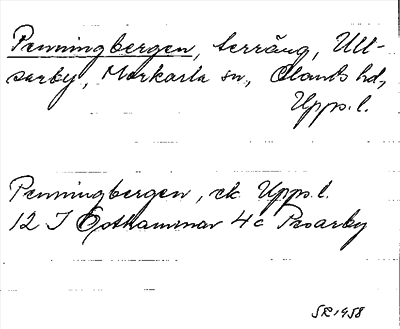 Penningbergen, terräng, Ull-
sarby, Morkarla sn, Olands hd,
Upps. l.
Penningbergen, ek Upps. l.
12 I Östhammar 4c Pesarby
SR 1958